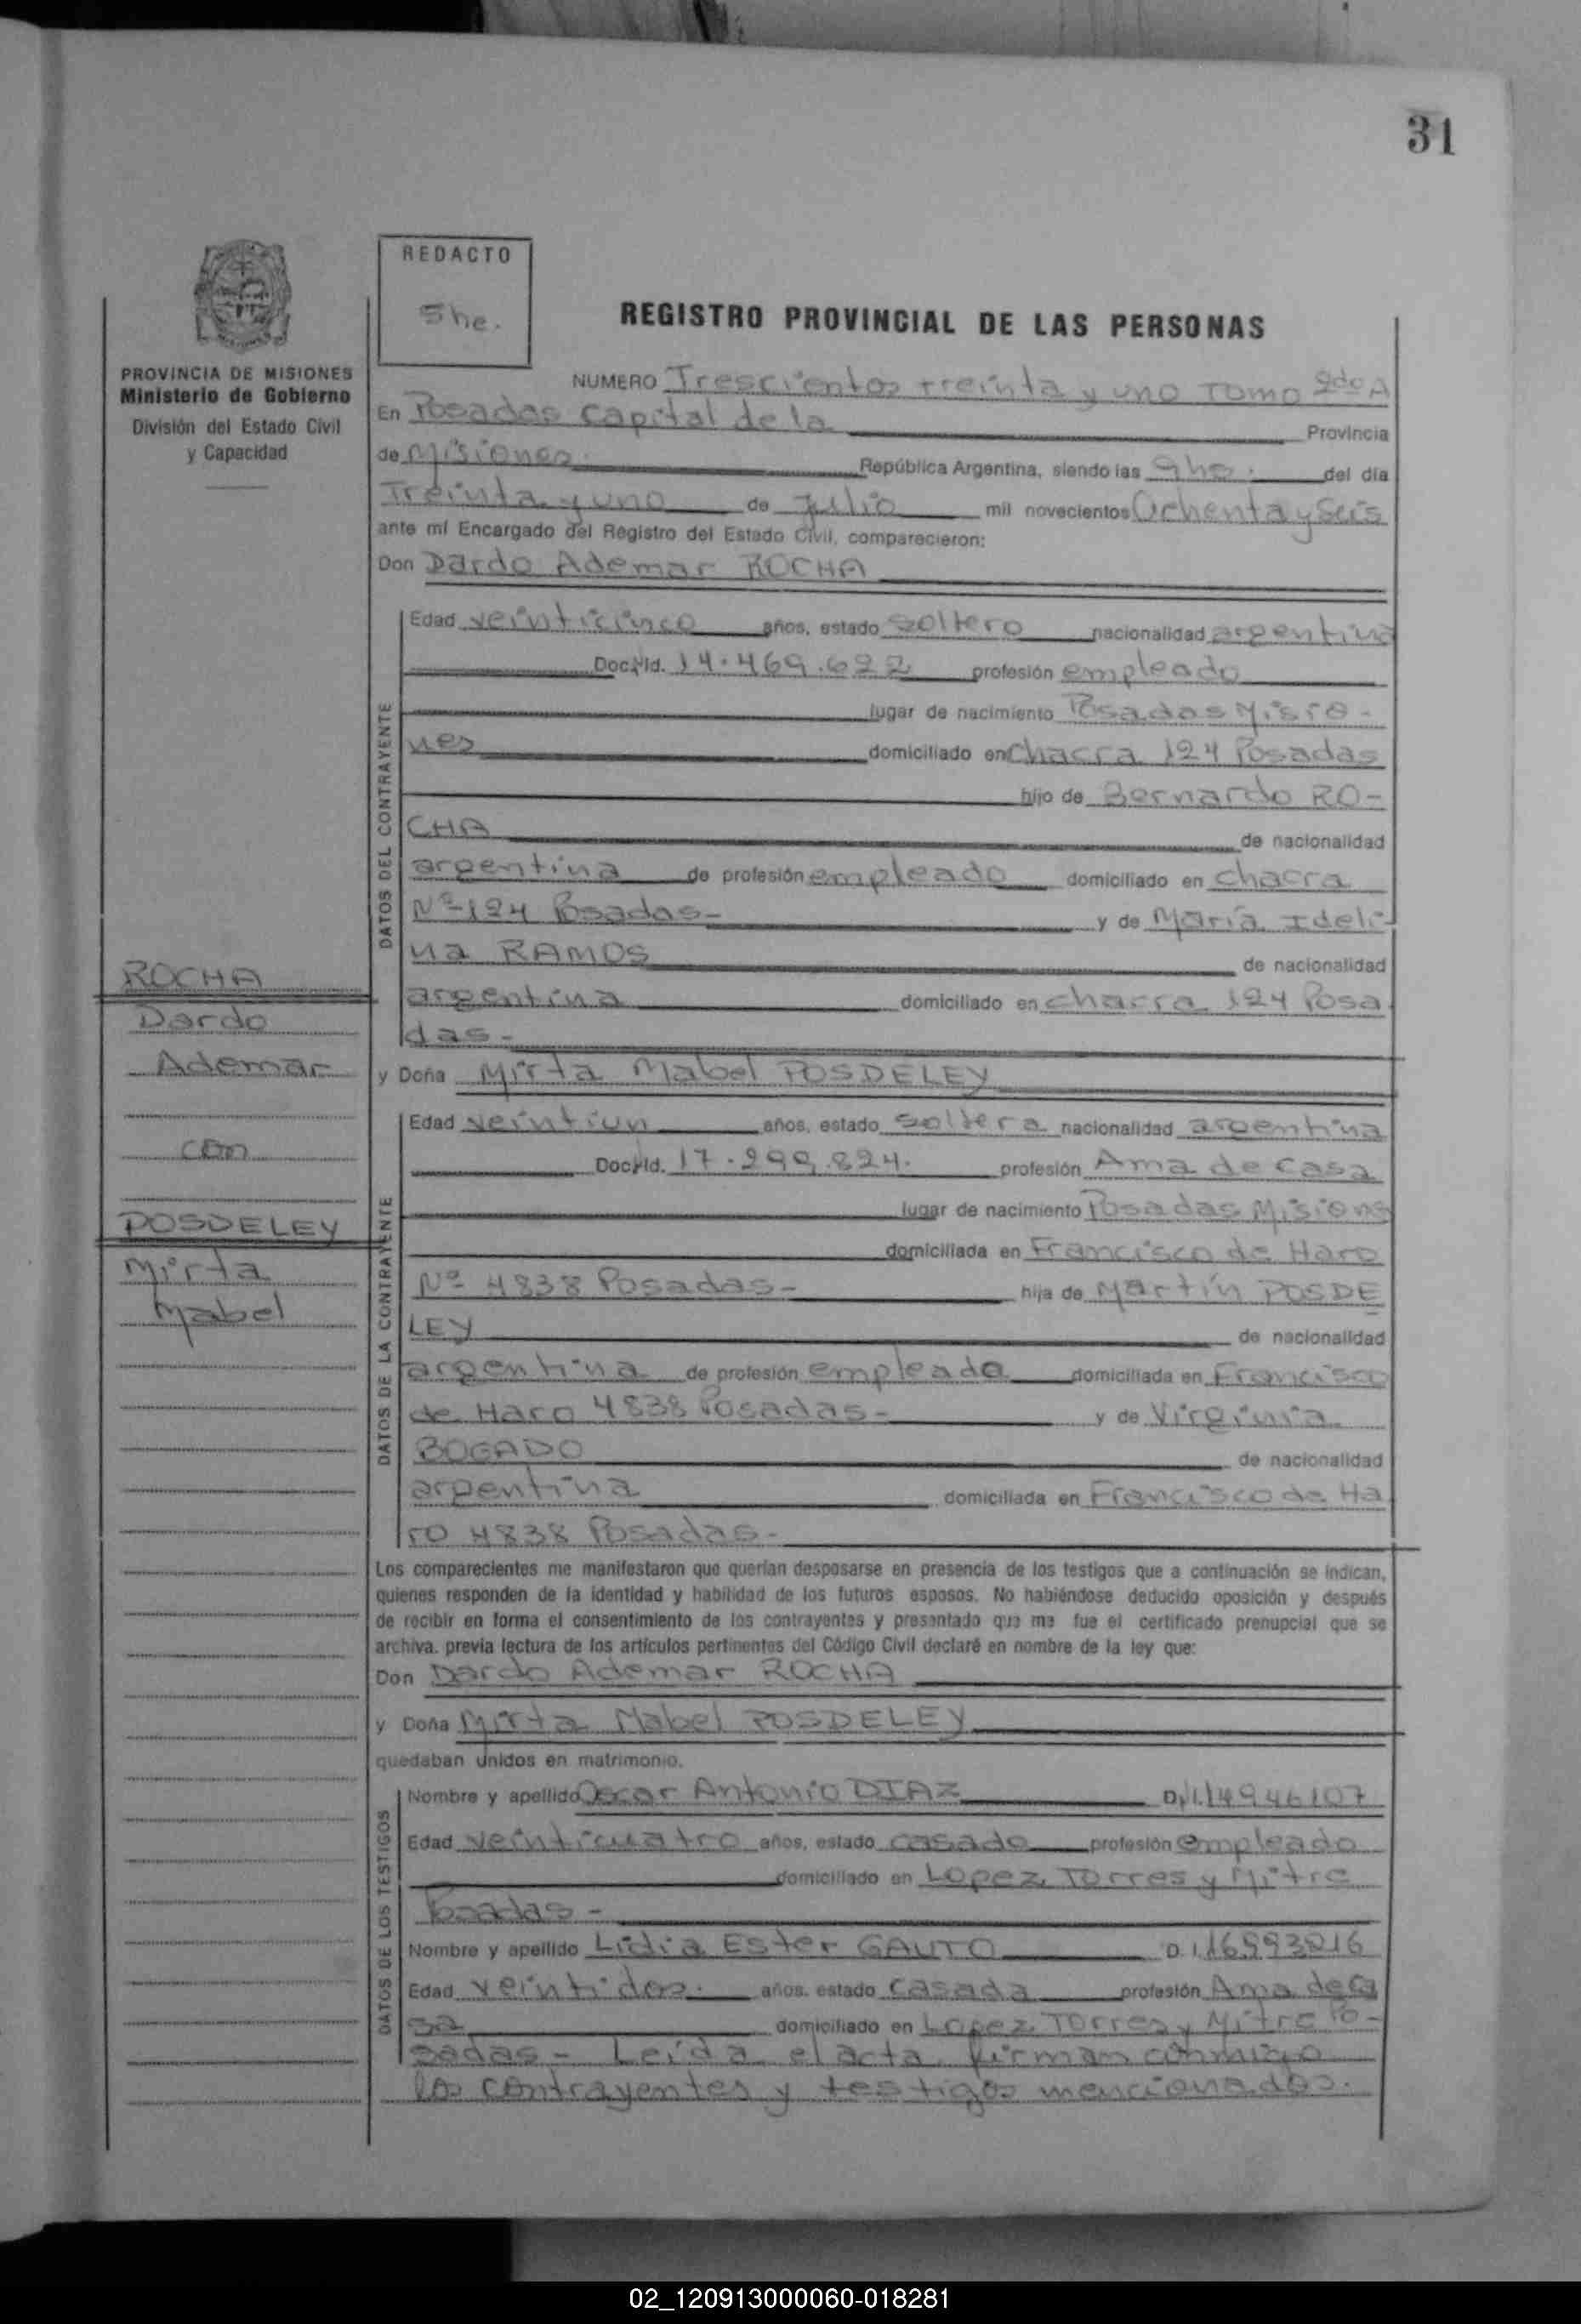 31
REDACTO
She.
REGISTRO PROVINCIAL DE LAS PERSONAS
PROVINCIA DE MISIONES
Ministerio de Gobierno
División del Estado Civil
y Capacidad
NUMERO Trescientos treinta y uno Tomo 2do A
En Posadas capital de la Provincia
de Misiones República Argentina, siendo las 9 hs. del día
Treinta y uno de Julio mil novecientos Ochenta y Seis
ante mí Encargado del Registro del Estado Civil, comparecieron:
Don Dardo Ademar ROCHA
DATOS DEL CONTRAYENTE
Edad veinticinco años, estado soltero nacionalidad argentina
Doc. Id. 14.469.622 profesión empleado
lugar de nacimiento Posadas Misio-
nes domiciliado en Chacra 124 Posadas
hijo de Bernardo RO-
CHA de nacionalidad
argentina de profesión empleado domiciliado en Chacra
Nº 124 Posadas- y de María Ideli-
na RAMOS de nacionalidad
argentina domiciliado en chacra 124 Posa
das-
ROCHA
Dardo
Ademar
con
POSDELEY
Mirta
Mabel
y Doña Mirta Mabel POSDELEY
DATOS DE LA CONTRAYENTE
Edad veintiun años, estado soltera nacionalidad argentina
Doc. Id. 17.299.824. profesión Ama de casa
lugar de nacimiento Posadas Misions
domiciliada en Francisco de Haro
Nº 4838 Posadas- hija de Martín POSDE
LEY de nacionalidad
argentina de profesión empleado domiciliada en Francisco
de Haro 4838 Posadas- y de Virginia
BOGADO de nacionalidad
argentina domiciliada en Francisco de Ha
ro 4838 Posadas-
Los comparecientes me manifestaron que querían desposarse en presencia de los testigos que a continuación se indican,
quienes responden de la identidad y habilidad de los futuros esposos. No habiéndose deducido oposición y después
de recibir en forma el consentimiento de los contrayentes y presentado que me fue el certificado prenupcial que se
archiva. previa lectura de los artículos pertinentes del Código Civil declaré en nombre de la ley que:
Don Dardo Ademar ROCHA
y Doña Mirta Mabel POSDELEY
quedaban unidos en matrimonio.
DATOS DE LOS TESTIGOS
Nombre y apellido Oscar Antonio DIAZ D.I. 14946107
Edad veinticuatro años, estado casado profesión empleado
domiciliado en Lopez Torres y Mitre
Posadas-
Nombre y apellido Lidia Ester GAUTO D.I. 16593016
Edad veintidos. años, estado casada profesión Ama de ca
sa domiciliado en Lopez Torres y Mitre Po-
sadas- Leída el acta, firman conmigo
los contrayentes y testigos mencionados.
02_120913000060-018281